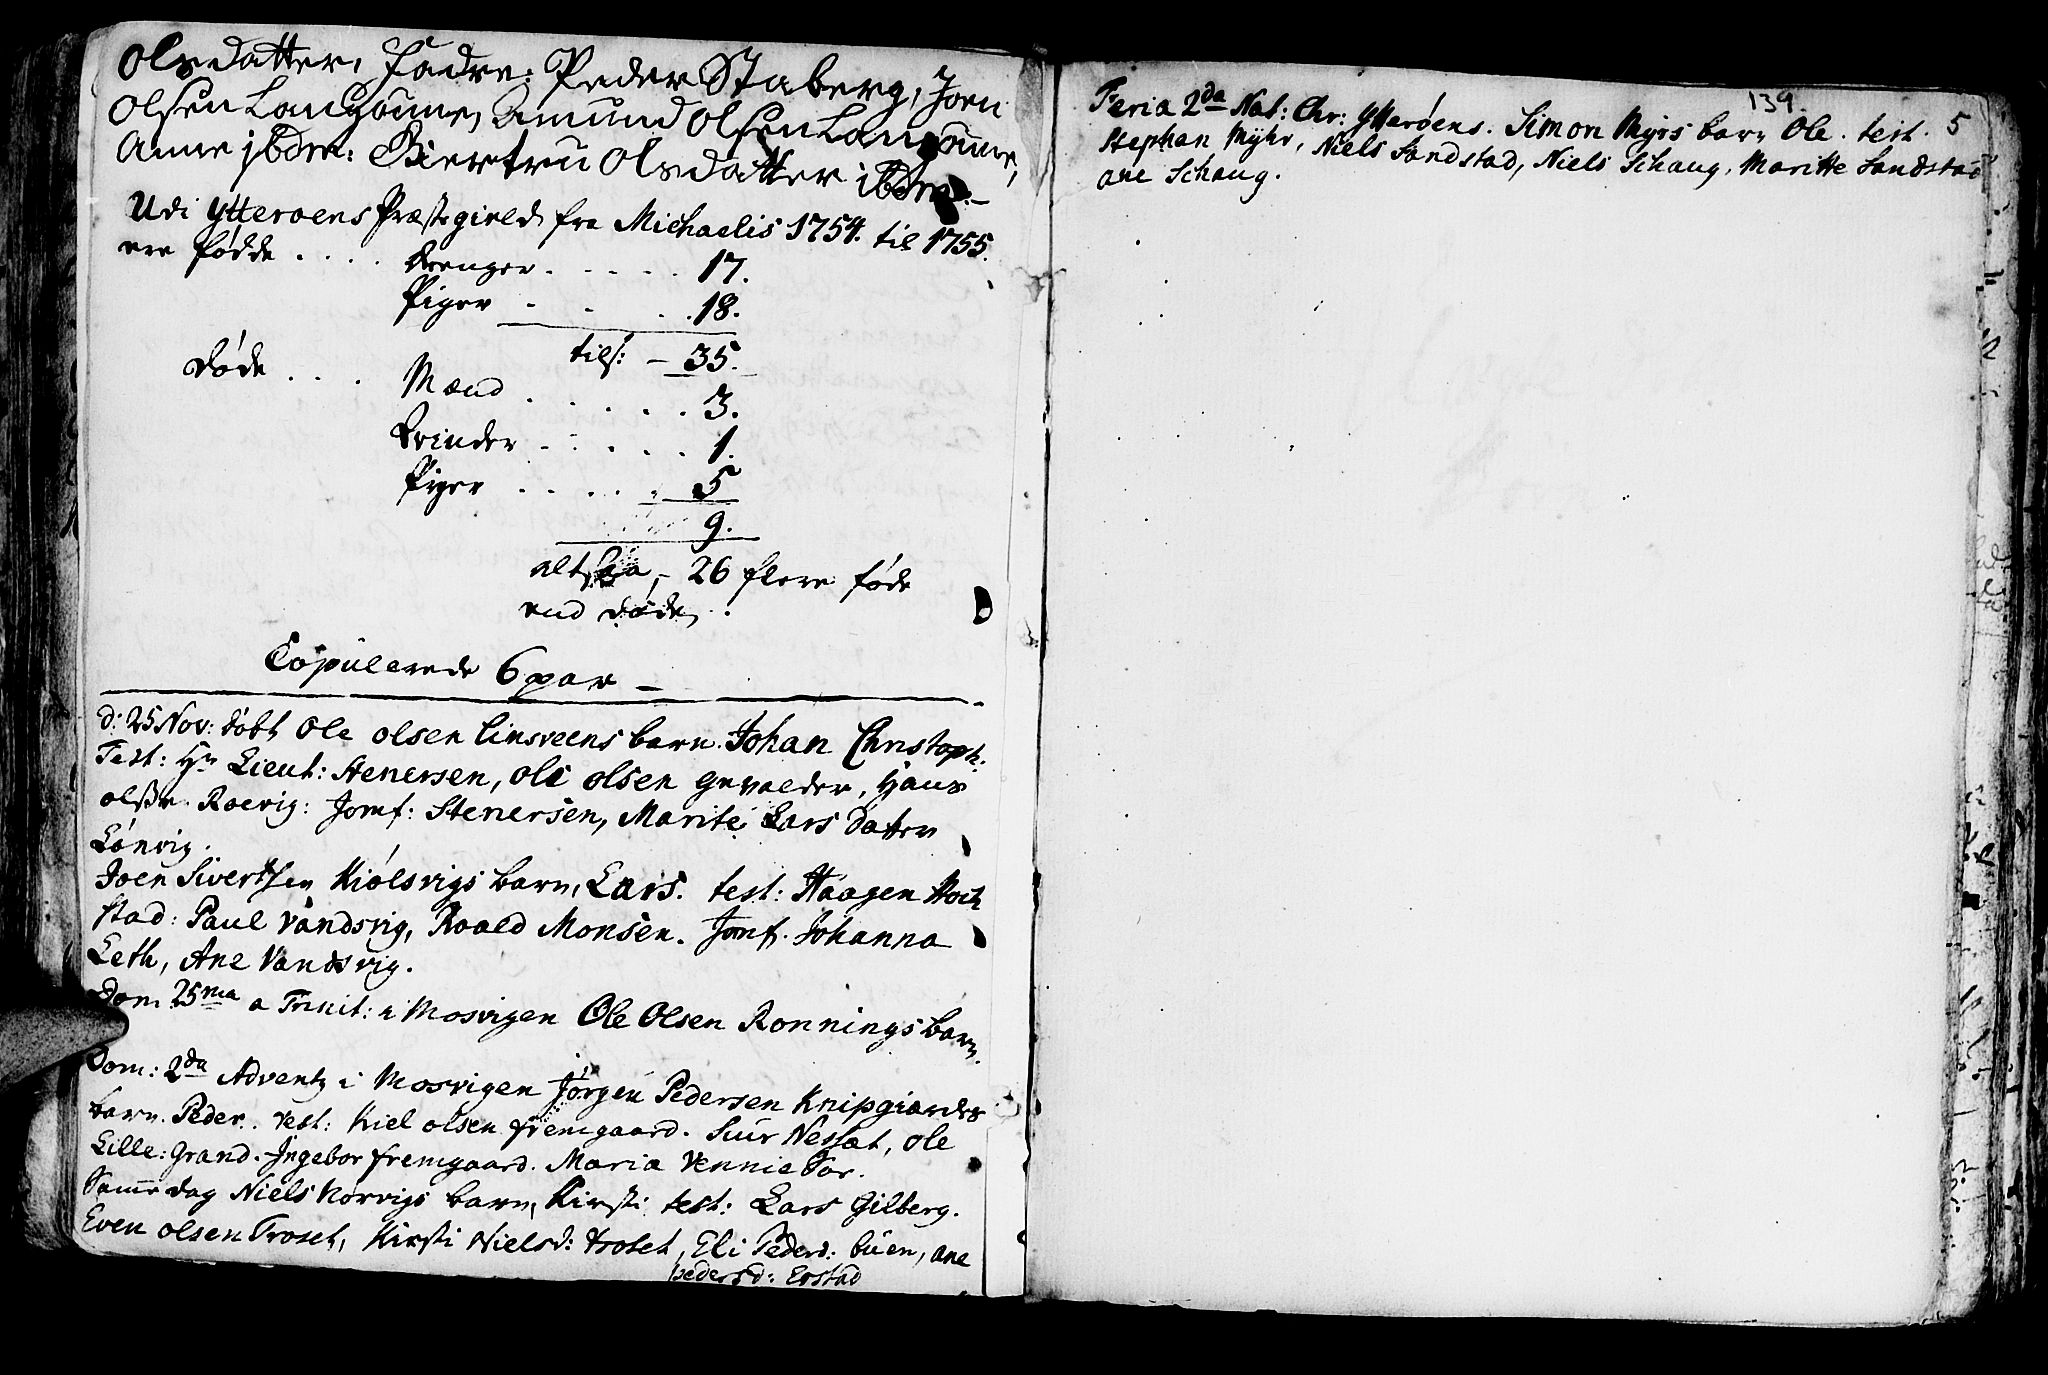 Olsdatter, Fadre: Peder Staberg, Joen
Olsen Langöune, Amund Olsen Langöune,
Anne ibdm: Giertru Olsdatter ibdm.
Udi Ytteroens Præstegield fra Michaelis 1754. til 1755.
ere födde . . . . drenger . . . . . 17.
Piger . . . . 18.
tils: – 35.
döde . . . Mænd . . . . . . 3.
Qvinder . . . . . 1.
Piger . . . . . 5
9.
altsaa, – 26 flere föde
end döde, . .
Copulerede 6 par –
d: 25 Nov: döbt Ole olsen Linsveens barn. Johan Christoph:
Test: Hr Lieut: Stenersen, Ole olsen gevalder, Hans
olsen Roevig: Jomf: Stenersen, Marite Lars Datter
Lönvig.
Joen Sivertsen Kiölsvigs barn, Lars. test: Haagen Hoch
stad: Paul Vandsvig, Roald Monsen. Jomf. Johanna
Leth, Ane Vandsvig.
Dom 25ma a Trinit: i Mosvigen Ole Olsen Ronnings barn.
Dom: 2da Adventz i Mosvigen Jörgen Pedersen Knipgiærdes
barn. Peder. test: Kiel olsen fremgaard. Siur Nessæt, Ole
Lille: Grand. Ingebor fremgaard. Maria Vennie Sor.
Samme dag Niels Norvigs barn, Kirsti test: Lars Gilberg.
Even olsen Troset, Kirsti Nielsd: troset, Eli Pedersd: büen, ane
pedersd: Erstad
139.
Feria 2da Nat: Chr: Ytterøens. Simon Myrs barn Ole. test. 5
Stephan Myhr, Niels Sandstad, Niels Schaug, Maritte Sandstad
ane Schaug.